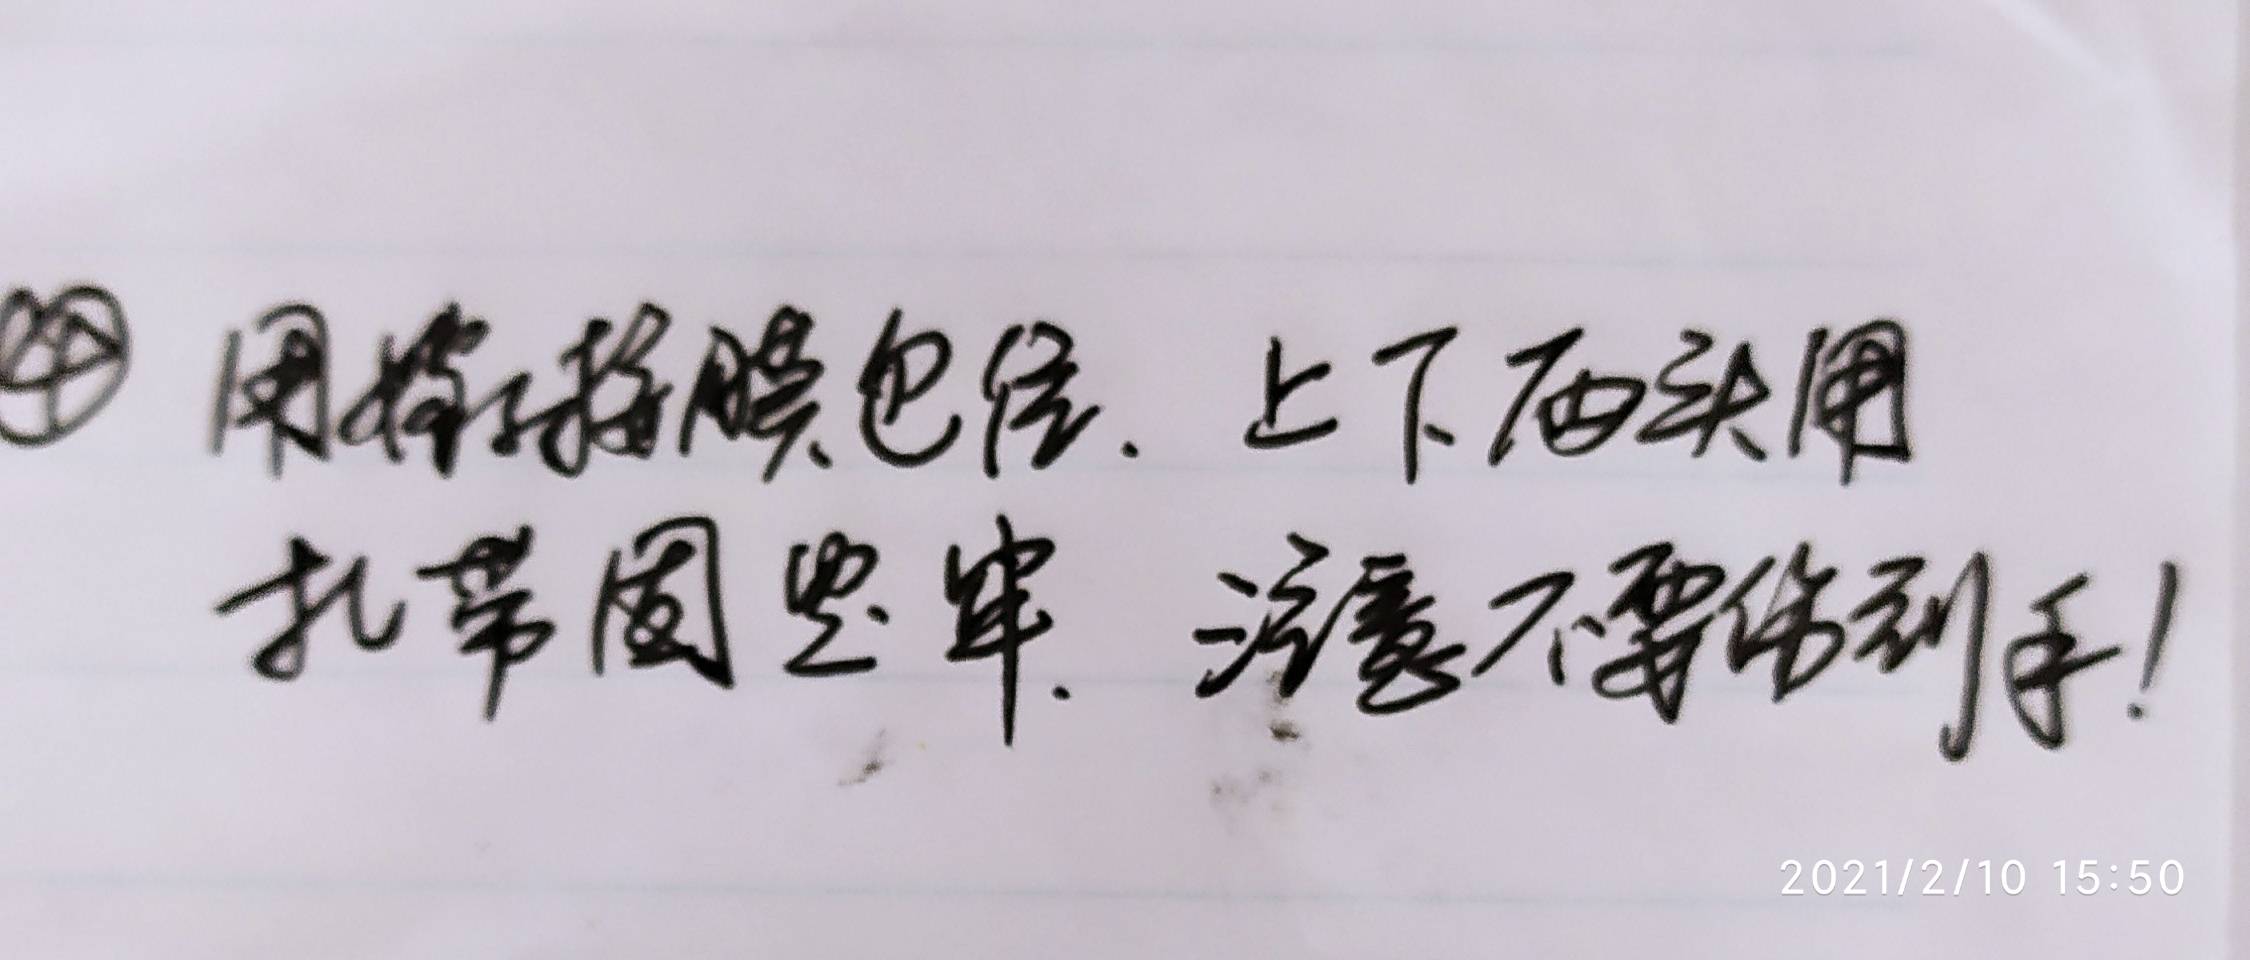 ④ 用缠膜包住. 上下两头用
扎带固坚牢. 注意不要伤到手!
2021/2/10 15:50